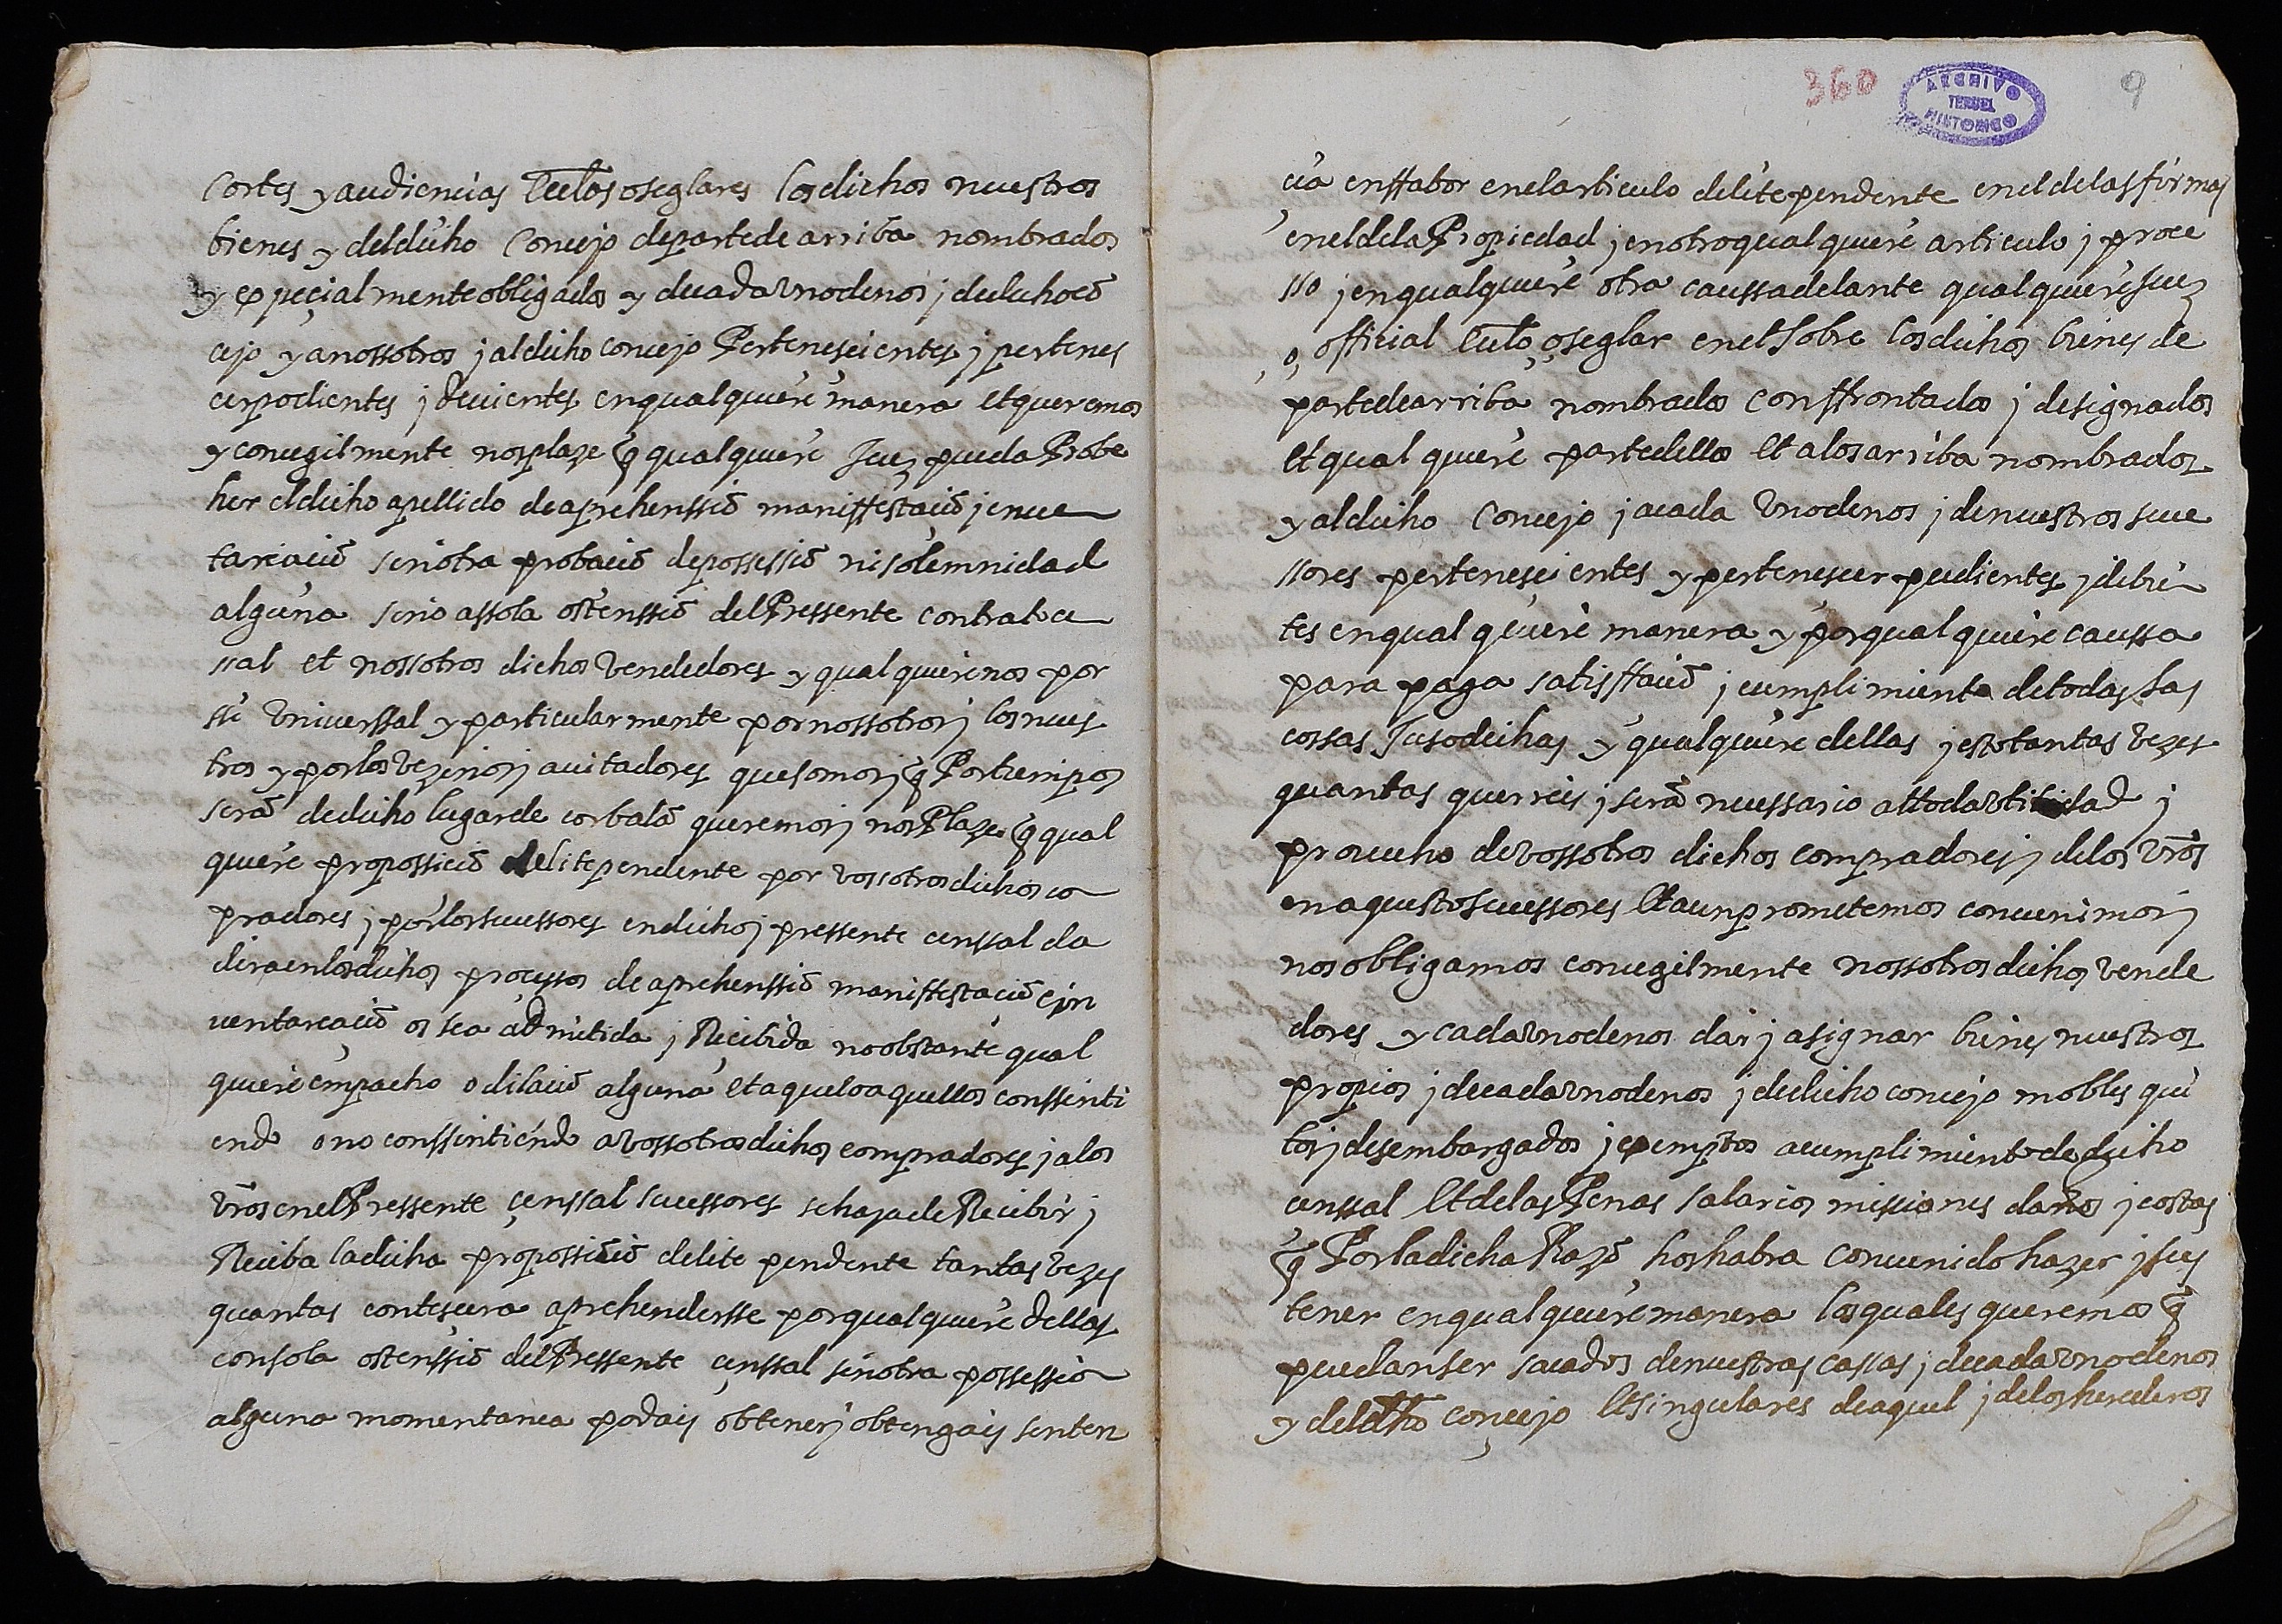 Cortes y audiencias Ecclos o seglares los dichos nuestros
bienes y del dicho Concejo de parte de arriba nombrados
y especialmente obligados y de cada vno de nos j de dicho cō
cejo y a nossotros j al dicho concejo Pertenescientes j pertenes
cer podientes j devientes en qualquiere manera et queremos
y concegilmente nos plaze q̄ qualquiere Juez pueda Probe
her el dicho apellido de aprehenssiō maniffestaciō j enuen
tariaciō sin otra probaciō de possessiō ni solemnidad
alguna sino assola ostenssiō del Pressente contrato cen
ssal et nossotros dichos vendedores y qualquiere nos por
ssi vniuerssal y particularmente por nossotros j los nues
tros y por los vezinos j auitadores que somos j q̄ Por tiempos
serā de dicho lugar de corbalā queremos j nos Plaze q̄ qual
quiere propossiciō de lite pendente por vossotros dichos co
pradores j por los sucessores en dicho j pressente censsal da
dera en los dichos processos de aprehenssiō maniffestaciō e jn
uentariaciō os sea admitida j Recibida no obstante qual
quiere empacho o dilaciō alguna et aquel o aquellos conssinti
endo o no conssintiendo a vossotros dichos compradores j a los
vros̄ en el Pressente censsal sucessores se haya de Recibir j
Reciba la dicha propossiciō de lite pendente tantas vezes
quantas contescera aprehendersse por qualquiere dellas
con sola ostenssiō del Pressente censsal sin otra possession
alguna momentanea podays obtener j obtengays senten
360
9
ARCHIVO
TERUEL
HISTORICO
cia enffabor en el articulo de lite pendente en el de las firmas
en el de la Propiedad j en otro qualquiere articulo j proce
sso j en qualquiere otra caussa delante qualquiere Juez
o official Ecclo o seglar en et Sobre los dichos bienes de
parte de arriba nombrados conffrontados j designados
et qualquiere parte dellos et a los arriba nombrados
y al dicho Concejo j a cada vno de nos j de nuestros suce
ssores pertenescientes y pertenescer pudientes j debien
tes en qualquiere manera y por qualquiere caussa
para paga satisffaciō j cumplimiento de todas las
cossas Jusodichas y qualquiere dellas j esto tantas vezes
quantas querreis j serā necessario a ttoda vtilidad j
prouecho de vossotros dichos compradores j de los vros̄
en aquesto sucessores Et aun prometemos conuenimos j
nos obligamos concegilmente nossotros dichos vende
dores y cada vno de nos dar j asignar bienes nuestros
propios j de cada vno de nos j de dicho concejo mobles qui
tos j desembargados j exemptos a cumplimiento de dicho
censsal Et de las Penas salarios missiones daños j costas
q̄ Por la dicha Razō hos habra conuenido hazer j sus
tener en qualquiere manera los quales queremos q̄
puedan ser sacados de nuestras cassas j de cada vno de nos
y del dho concejo Et singulares de aquel j de los herederos